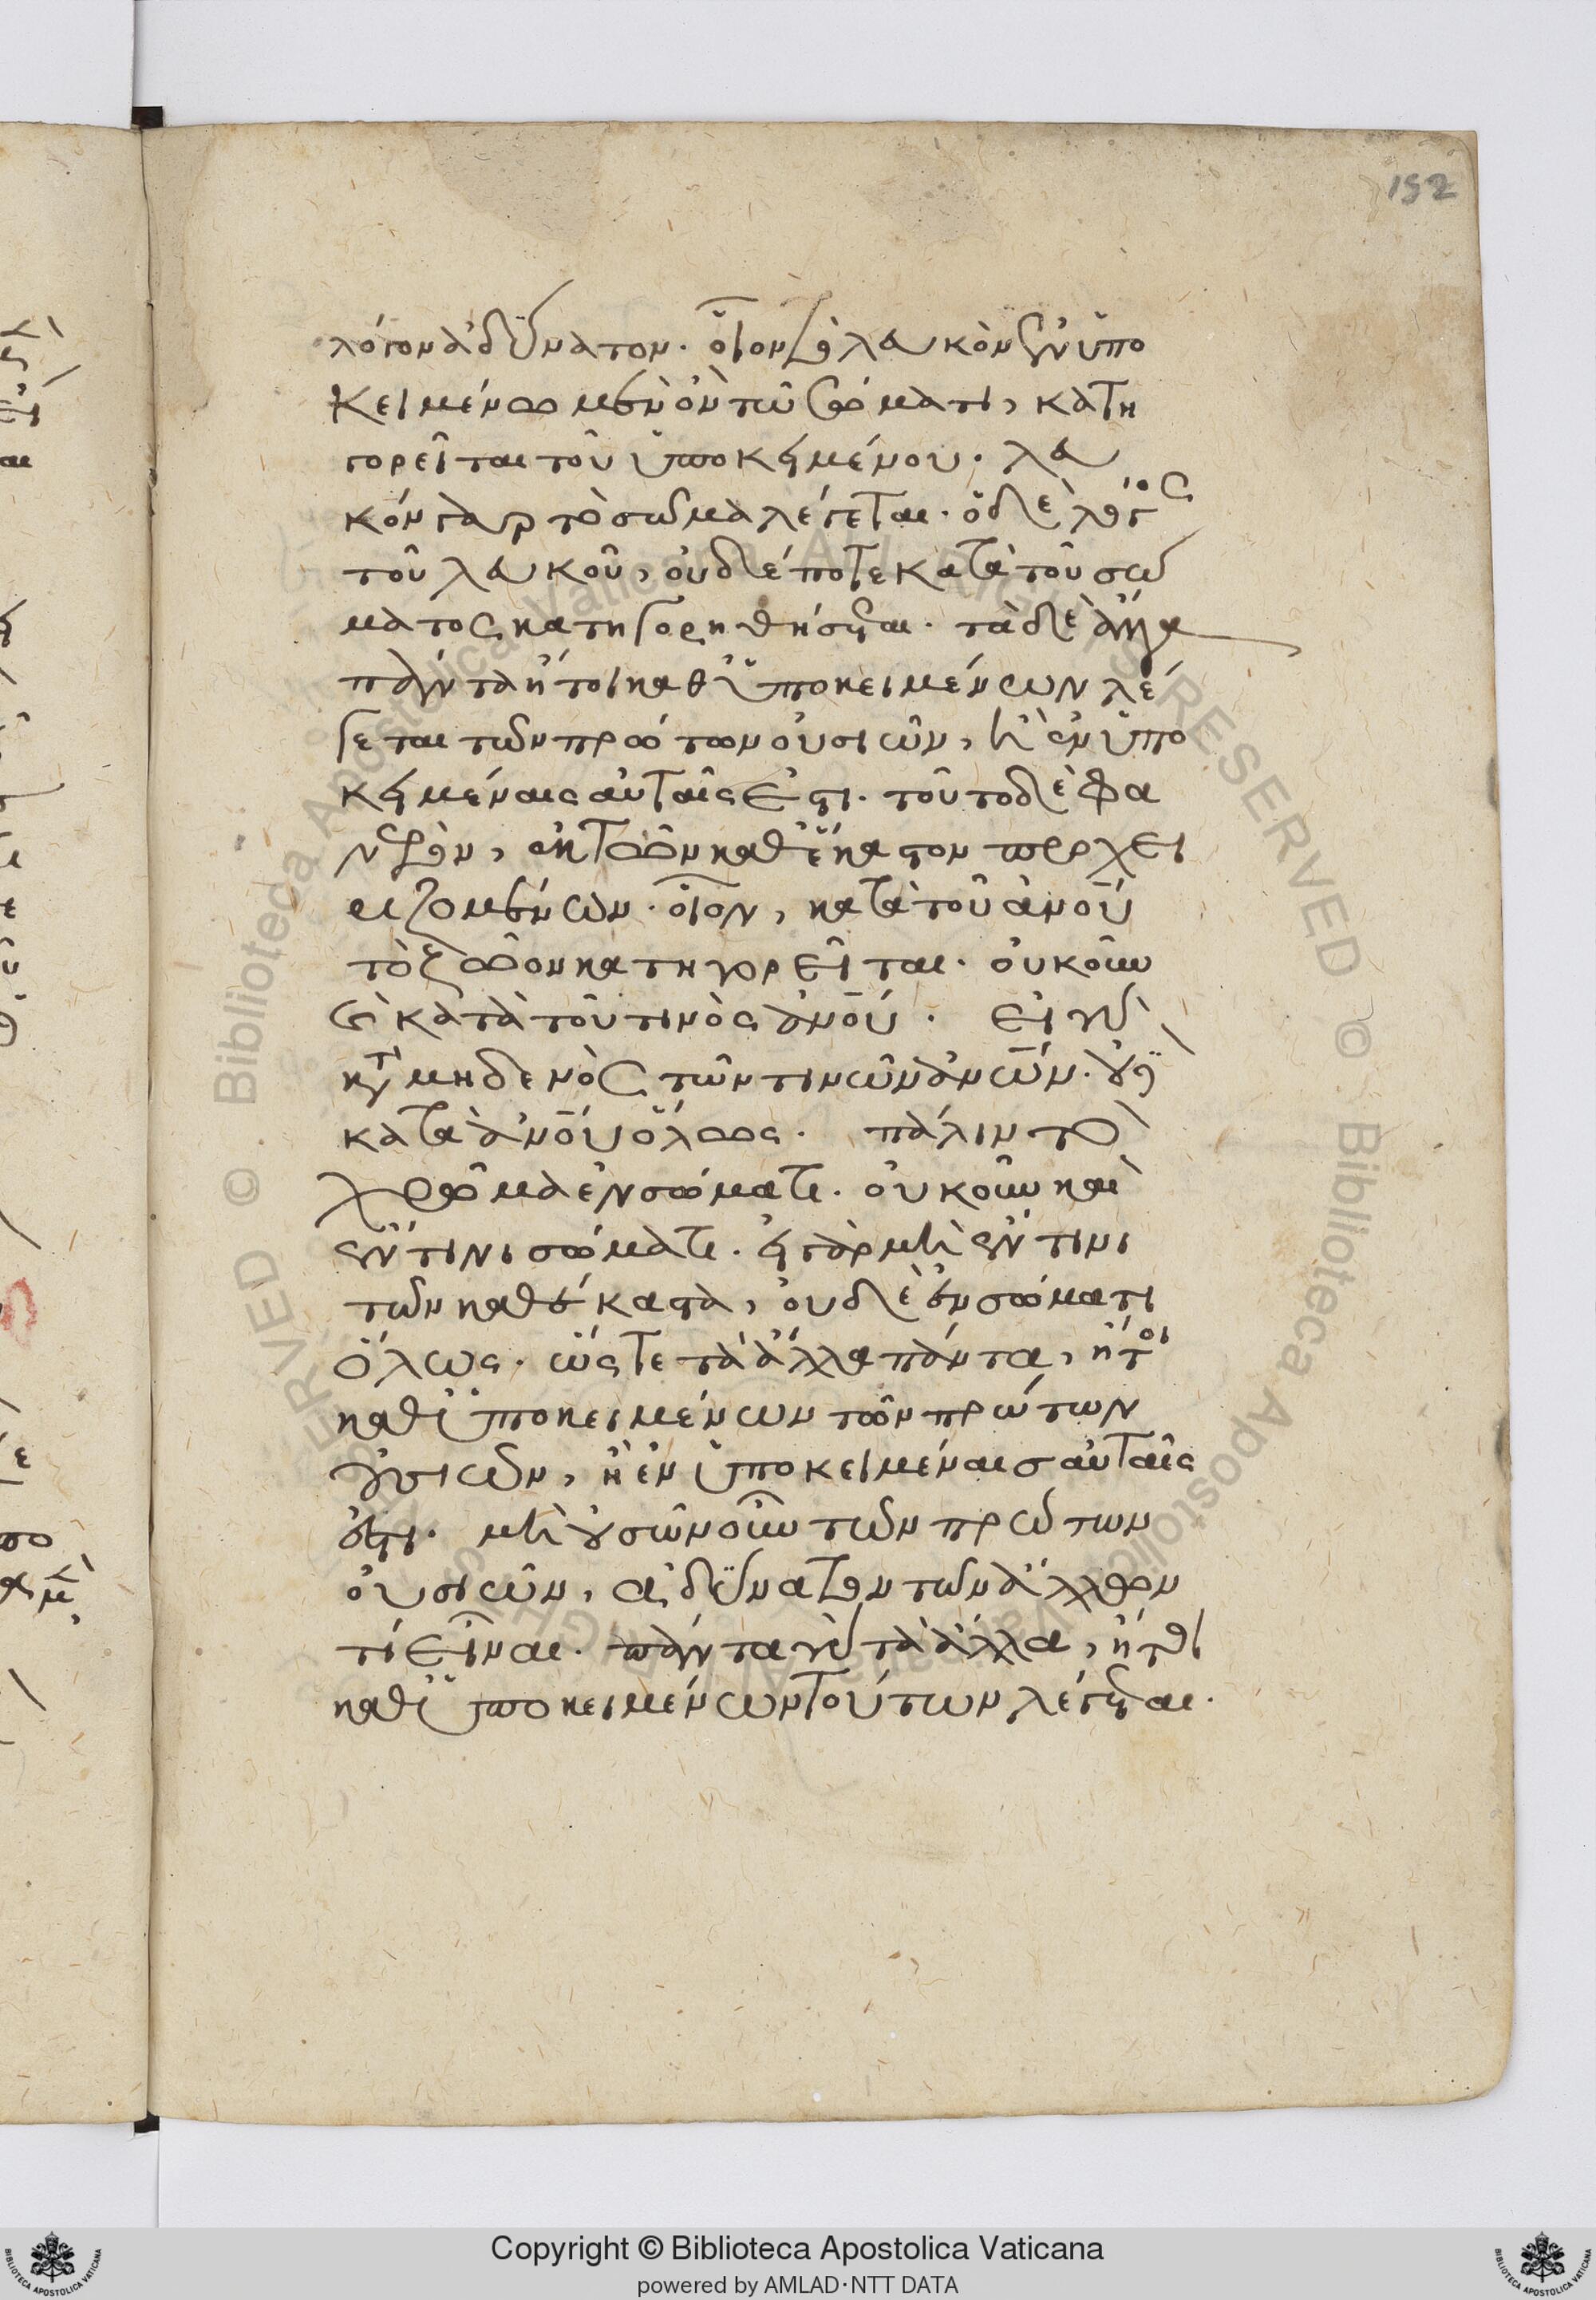 152
λόγον ἀδύνατον· οἷον τὸ λευκὸν ἐν ὑπο
κειμένῳ μὲν ὂν τῷ σώματι, κατη
γορεῖται τοῦ ὑποκειμένου· λευ
κὸν γὰρ τὸ σῶμα λέγεται· ὁ δὲ λόγος
τοῦ λευκοῦ, οὐδέποτε κατὰ τοῦ σώ
ματος κατηγορηθήσεται· τὰ δὲ ἄλλα
πάντα ἤτοι καθ' ὑποκειμένων λέ
γεται τῶν πρώτων οὐσιῶν, ἢ ἐν ὑπο
κειμέναις αὐταῖς ἐστι· τοῦτο δὲ φα
νερὸν, ἐκ τῶν καθ' ἕκαστον προχει
ριζομένων· οἷον, κατὰ τοῦ ἀνου
τὸ ζῶον κατηγορεῖται· οὐκοῦν
καὶ κατὰ τοῦ τινὸς ἀνου· εἰ γὰρ
κατὰ μηδενὸς τῶν τινῶν ἀνων· οὐδὲ
κατὰ ἀνου ὅλως· πάλιν τὸ
χρῶμα ἐν σώματι· οὐκοῦν καὶ
ἐν τινι σώματι· εἰ γὰρ μὴ ἐν τινι
τῶν καθέκαστα, οὐδὲ ἐν σώματι
ὅλως· ὥστε τὰ ἄλλα πάντα, ἤτοι
καθ' ὑποκειμένων τῶν πρώτων
οὐσιῶν, ἢ ἐν ὑποκειμέναις αὐταῖς
ἐστι· μὴ οὐσῶν οὖν τῶν πρώτων
οὐσιῶν, ἀδύνατον τῶν ἄλλων
τι εἶναι· πάντα γὰρ τὰ ἄλλα, ἤτοι
καθ' ὑποκειμένων τούτων λέγεται·
Copyright © Biblioteca Apostolica Vaticana
powered by AMLAD·NTT DATA